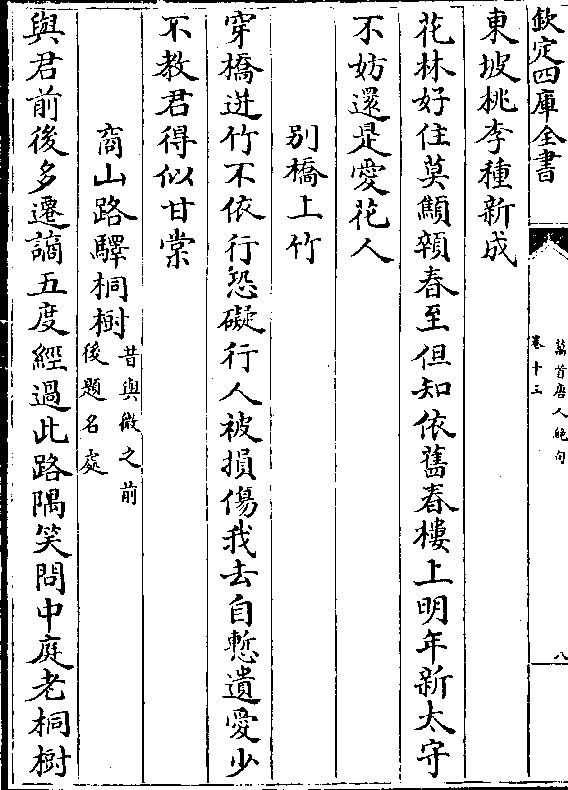 欽定四庫全書
萬首唐人絶句
卷十三
八
東坡桃李種新成
花林好住莫顦顇春至但知依舊春樓上明年新太守
不妨還是愛花人
別橋上竹
穿橋迸竹不依行恐礙行人被損傷我去自慙遺愛少
不教君得似甘棠
商山路驛桐樹昔與微之前
後題名處
與君前後多遷謫五度經過此路隅笑問中庭老桐樹